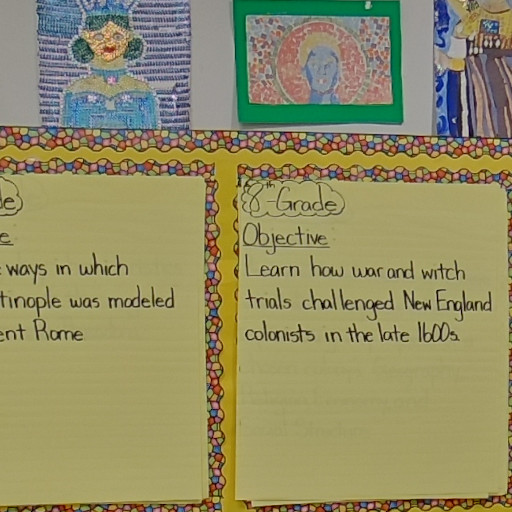 de
e
ways in which
tinople was modeled
ent Rome
8th Grade
Objective
Learn how war and witch
trials challenged New England
colonists in the late 1600s.